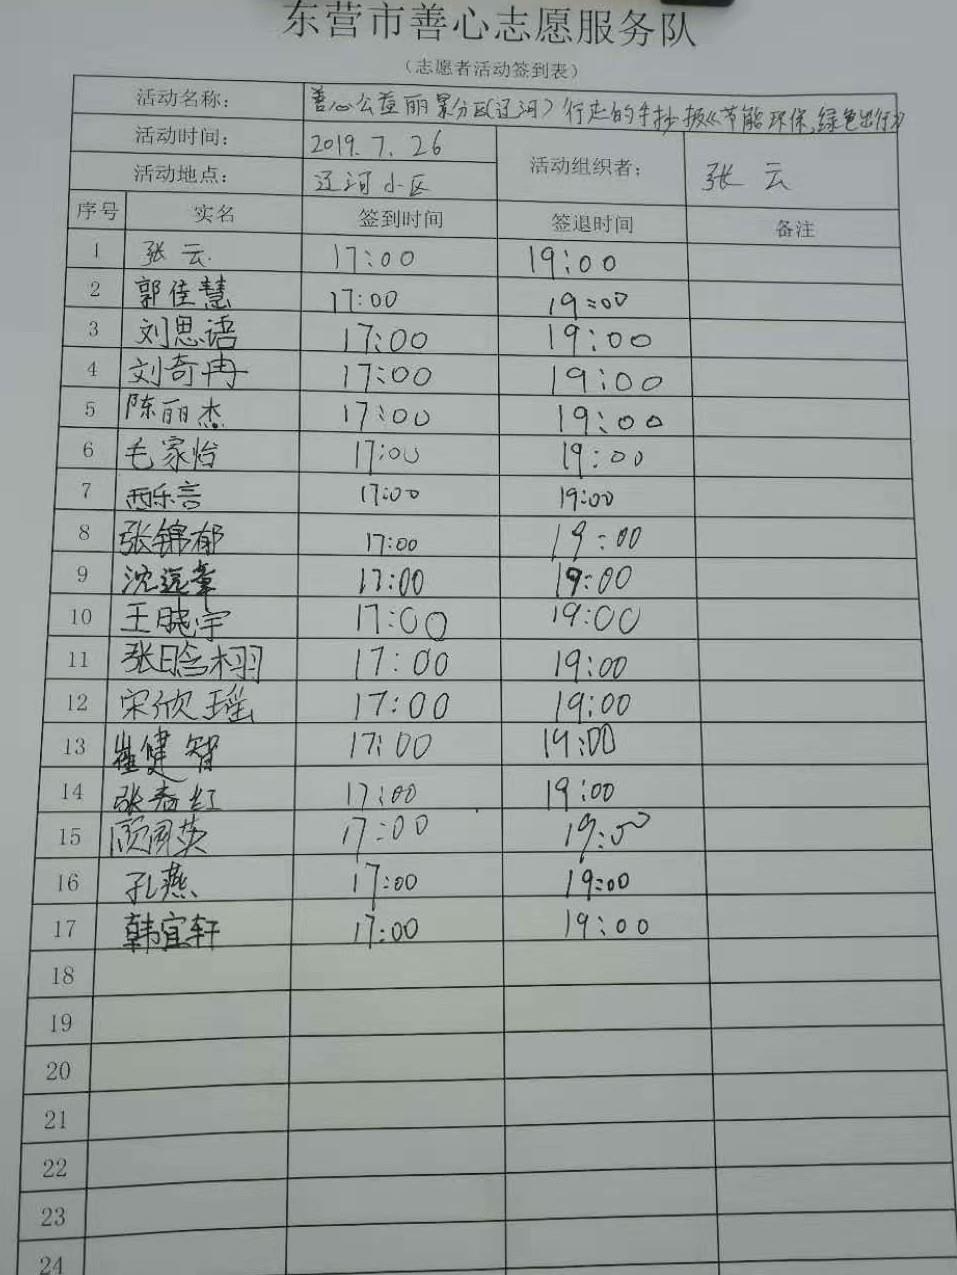 东营市善心志愿服务队
（志愿者活动签到表）
活动名称： 善心公益丽景分区(辽河）行走的手抄报《节能环保,绿色出行》
活动时间： 2019.7.26 活动组织者； 张云
活动地点： 辽河小区
序号 实名 签到时间 签退时间 备注
1 张云 17:00 19:00
2 郭佳慧 17:00 19:00
3 刘思语 17:00 19:00
4 刘奇冉 17:00 19:00
5 陈丽杰 17:00 19:00
6 毛家怡 17:00 19:00
7 西乐言 17:00 19:00
8 张锦郁 17:00 19:00
9 沈远章 17:00 19:00
10 王晓宇 17:00 19:00
11 张晗栩 17:00 19:00
12 宋欣瑶 17:00 19:00
13 崔健智 17:00 19:00
14 张春红 17:00 19:00
15 17:00 19:00
16 孔燕 17:00 19:00
17 韩宜轩 17:00 19:00
18
19
20
21
22
23
24